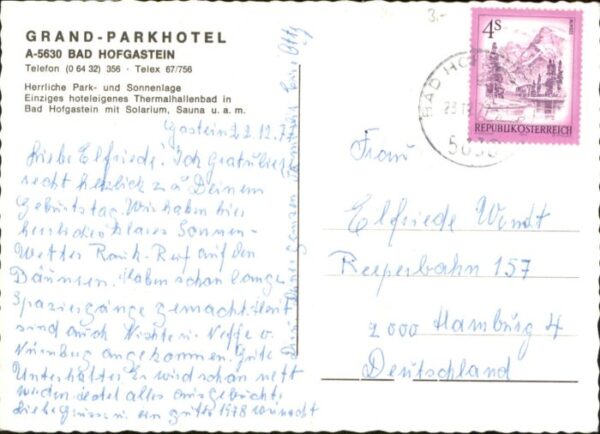 GRAND-PARKHOTEL
A-5630 BAD HOFGASTEIN
Telefon (0 64 32) 356 · Telex 67/756
Herrliche Park- und Sonnenlage
Einziges hoteleigenes Thermalhallenbad in
Bad Hofgastein mit Solarium, Sauna u. a. m.
Gastein 22.12.77
Liebe Elfriede! Ich Gratuliere
recht herzlich zu Deinem
Geburtstag. Wir haben hier
Sonnen-
Wetter Reif auf den
Bäumen. Haben schon lange
Spaziergänge gemacht. Heut
sind auch Nichte u. Neffe v.
Nürnberg angekommen. Gute
Unterhalter Es wird schon nett
werden. alles ausgebucht.
Liebe Grüsse u. ein gutes 1978 wünscht
ganzen
3.-
4S
REPUBLIK ÖSTERREICH
BAD HOF
5630
Frau
Elfriede Wendt
Reeperbahn 157
2000 Hamburg 4
Deutschland